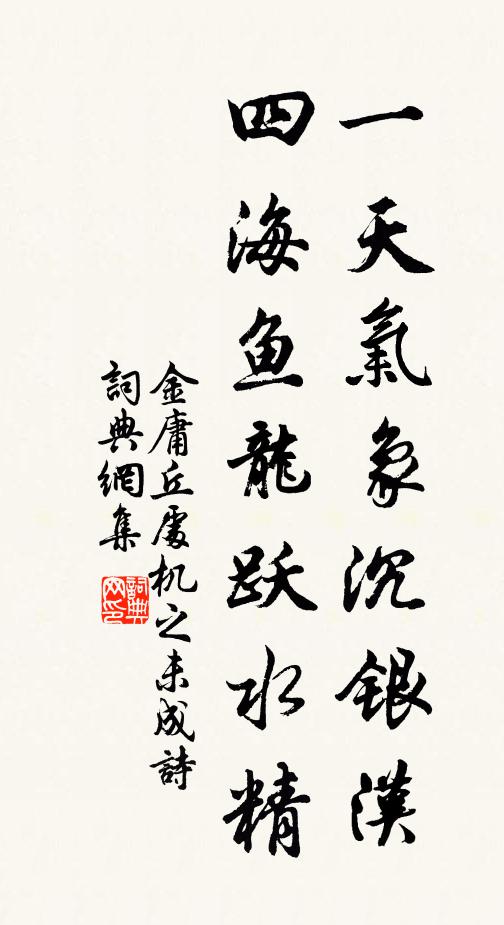 一天氣象沉銀漢
四海鱼龍跃水精
金庸丘處机之未成詩
詞典網集
詞典
網印